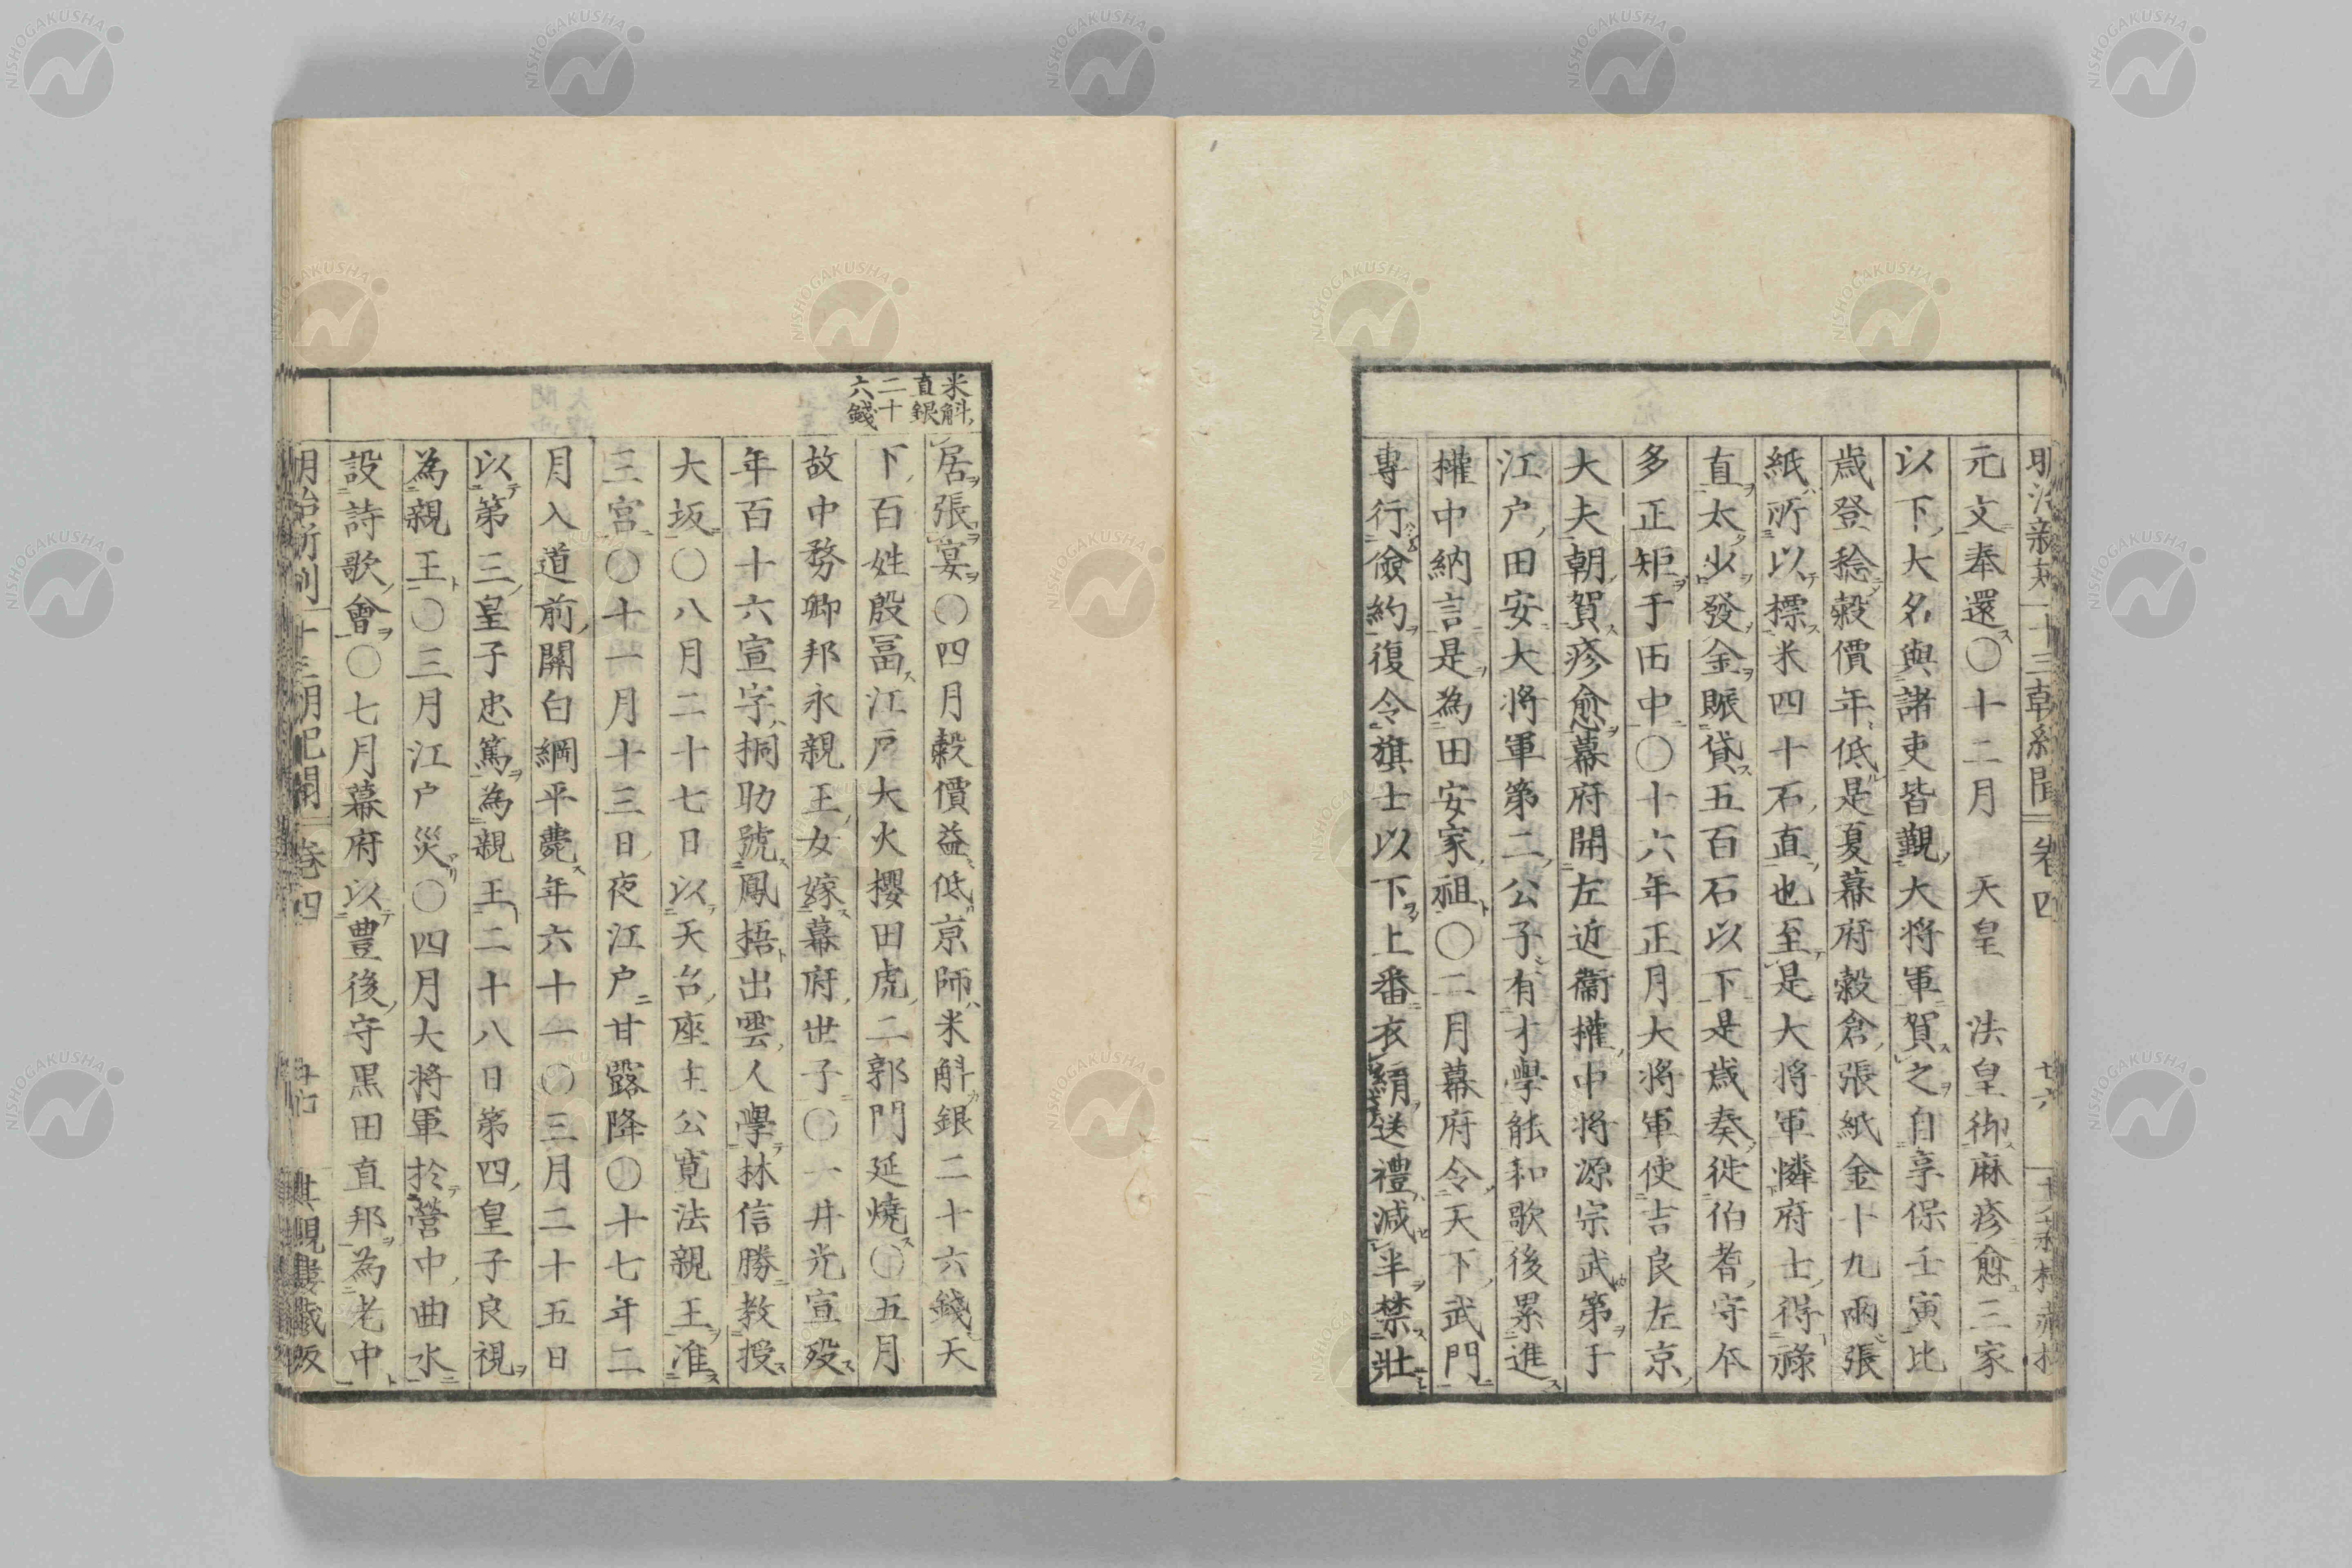 元文奉還〇十二月　天皇　法皇御麻疹愈三家
以下大名與諸吏皆觀大將軍賀之自享保壬寅比
歲登稔穀價年低是夏幕府穀倉張紙金十九兩張
紙所以標米四十石直也至是大將軍憐府士得祿
直太少發金賑貸五百石以下是歲奏從伯耆守本
多正矩于田中〇十六年正月大將軍使吉良左京
大夫朝賀疹愈幕府開左近衞權中將源宗武第于
江戶田安大將軍第二公子有才學能和歌後累進
權中納言是為田安家祖〇二月幕府令天下武門
專行儉約復令旗士以下上番衣絹送禮減半禁壯
米斛
直銀
二十
六錢
居張宴〇四月穀價益低京師米斛銀二十六錢天
下百姓殷冨江戶大火櫻田虎二郭門延燒〇五月
故中務卿邦永親王女嫁幕府世子〇一井光宣歿
年百十六宣字桐助號鳳梧出雲人學林信勝教授
大坂〇八月二十七日以天台座主公寬法親王准
三宮〇十一月十三日夜江戶甘露降〇十七年二
月入道前關白綱平薨年六十一〇三月二十五日
以第三皇子忠篤為親王二十八日第四皇子良視
為親王〇三月江戶災〇四月大將軍於營中曲水
設詩歌會〇七月幕府以豊後守黒田直邦為老中
卷四
NISHOGAKUSHA